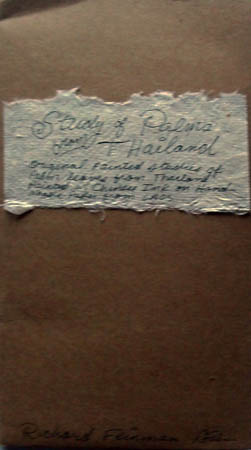 Study of Palms
from Thailand
Original painted studies of
Palm leaves from Thailand
Painted in Chinese Ink on Hand
made paper from Laos
Richard Feinman